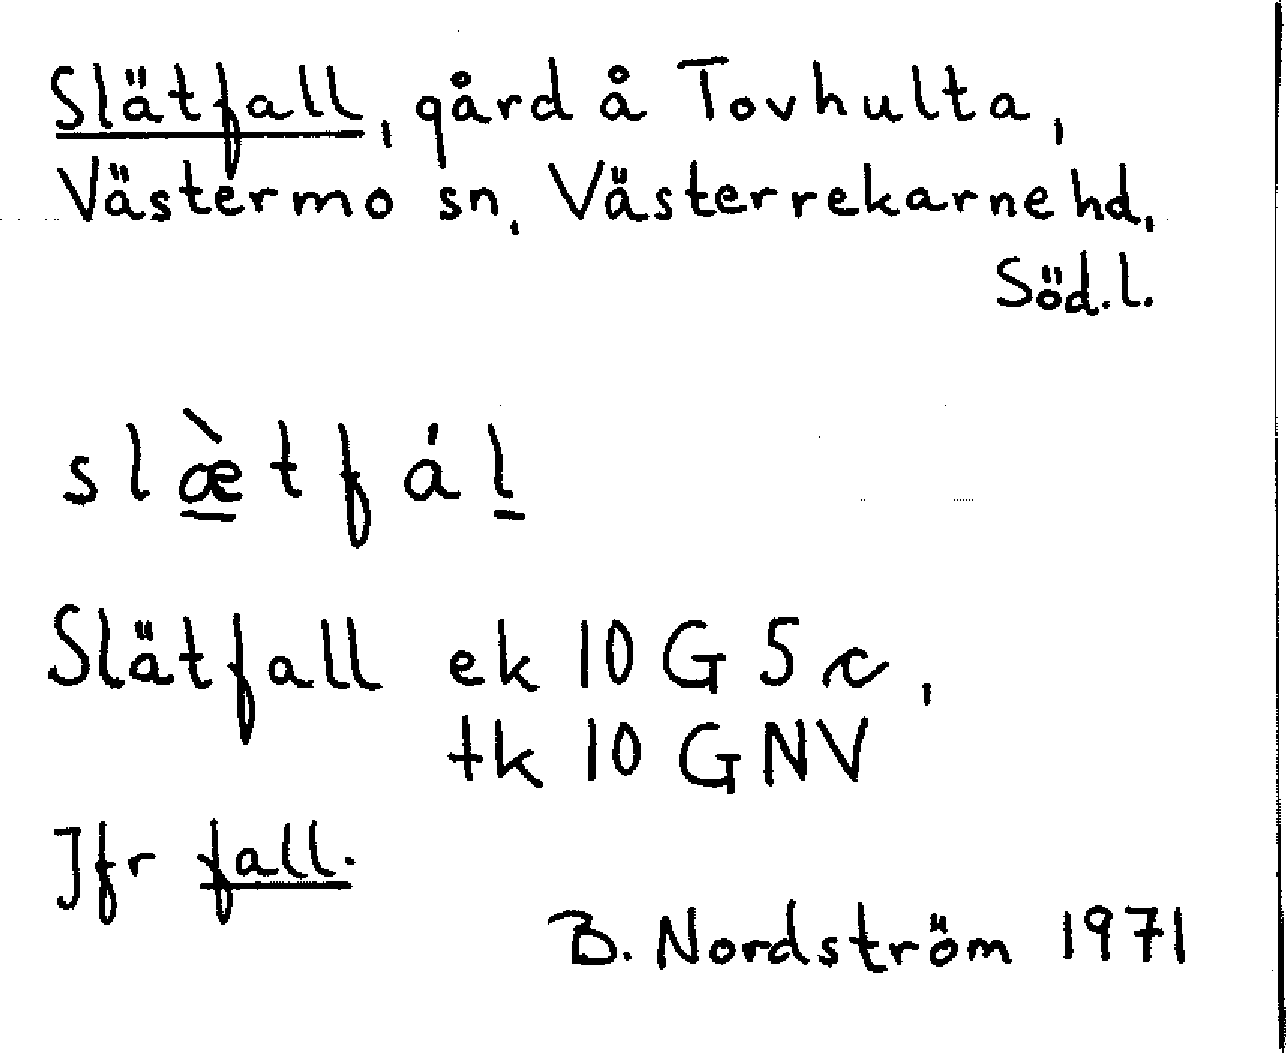 Slätfall, gård å Tovhulta,
Västermo sn, Västerrekarne hd,
Söd.l.
slæ̱̀tfál̲
Slätfall ek 10 G 5 c,
tk 10 GNV
Jfr fall.
B. Nordström 1971